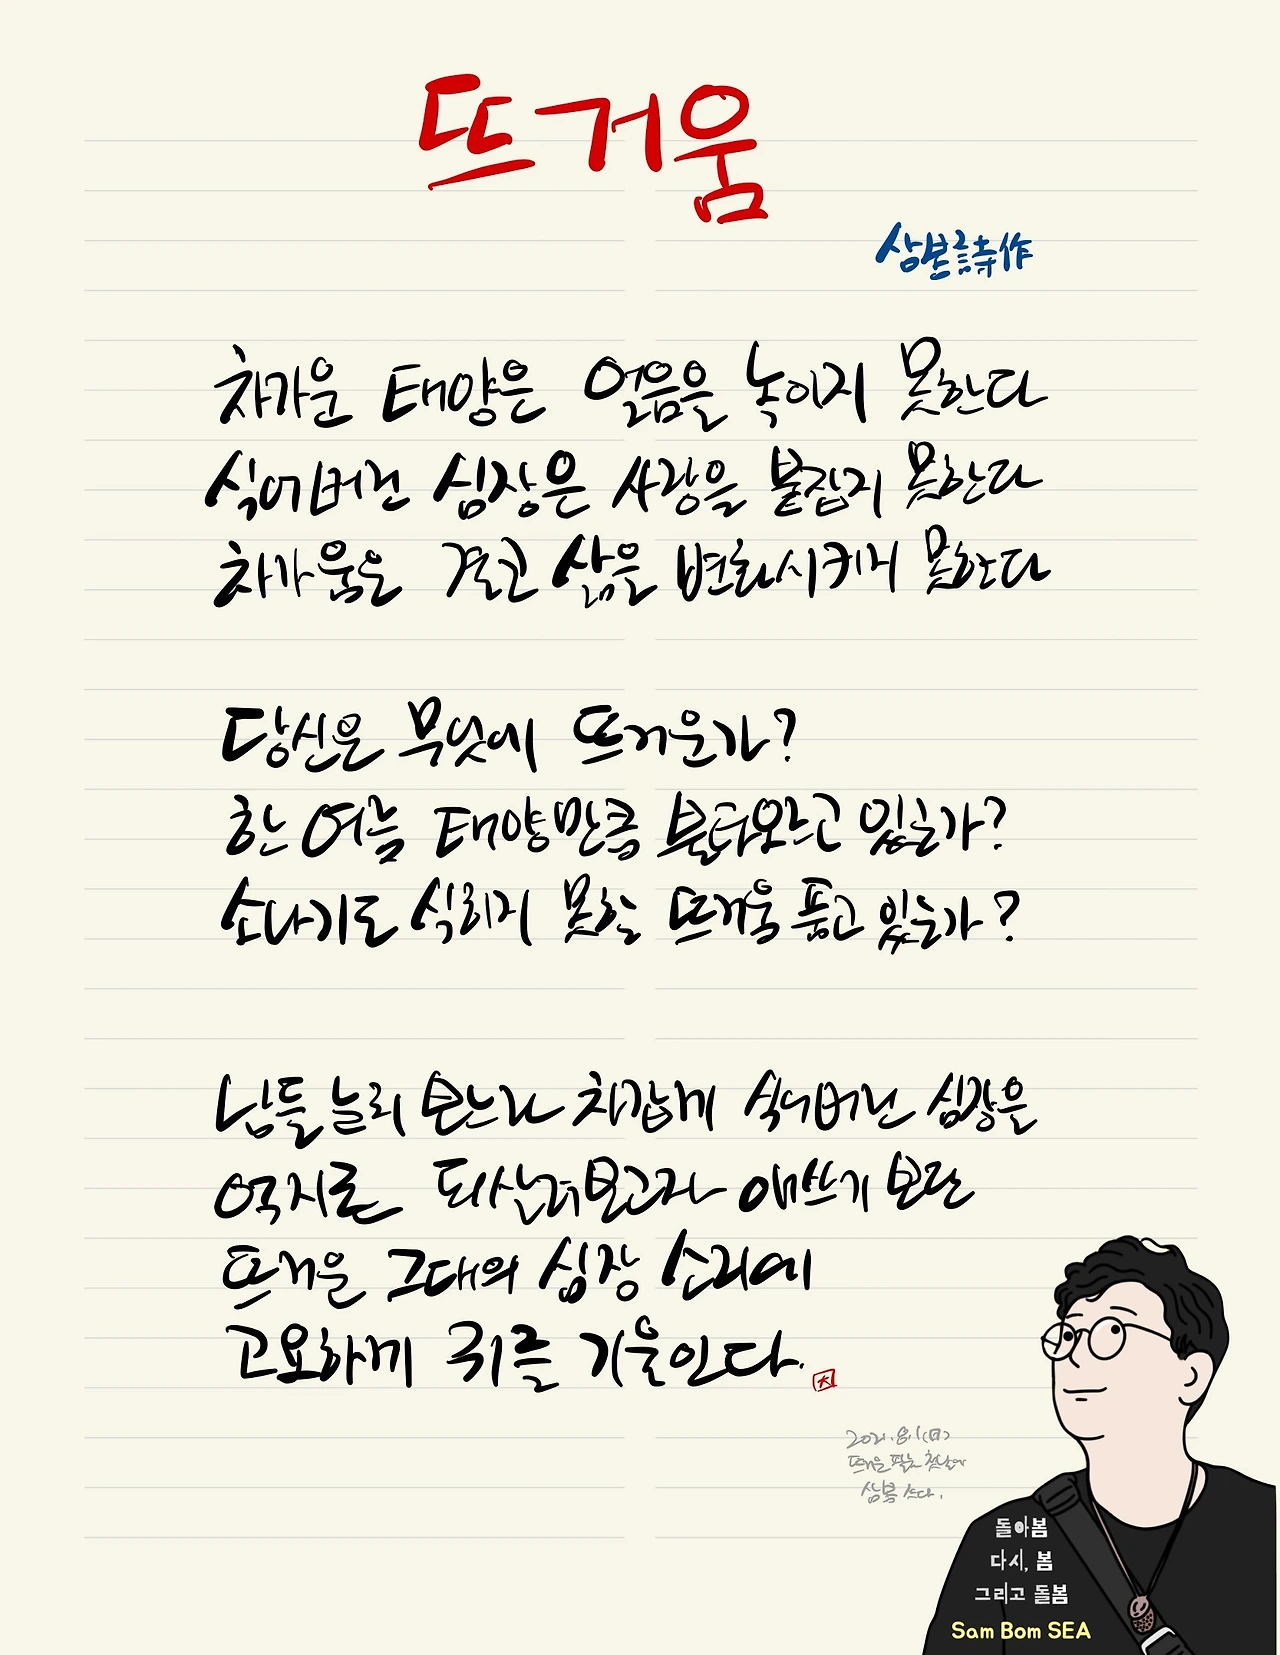 뜨거움
삼봄詩作
차가운 태양은 얼음을 녹이지 못한다
식어버린 심장은 사랑을 붙잡지 못한다
차가움은 결코 삶을 변화시키지 못한다
당신은 무엇에 뜨거운가?
한 여름 태양만큼 불타오르고 있는가?
소나기도 식히지 못할 뜨거움 품고 있는가?
남들 눈치 보느라 차갑게 식어버린 심장을
억지로 되살려보고자 애쓰기 보단
뜨거운 그대의 심장 소리에
고요하게 귀를 기울인다.
2021.8.1(日)
뜨거운 팔월 첫날에
삼봄 쓰다.
돌아봄
다시, 봄
그리고 돌봄
Sam Bom SEA